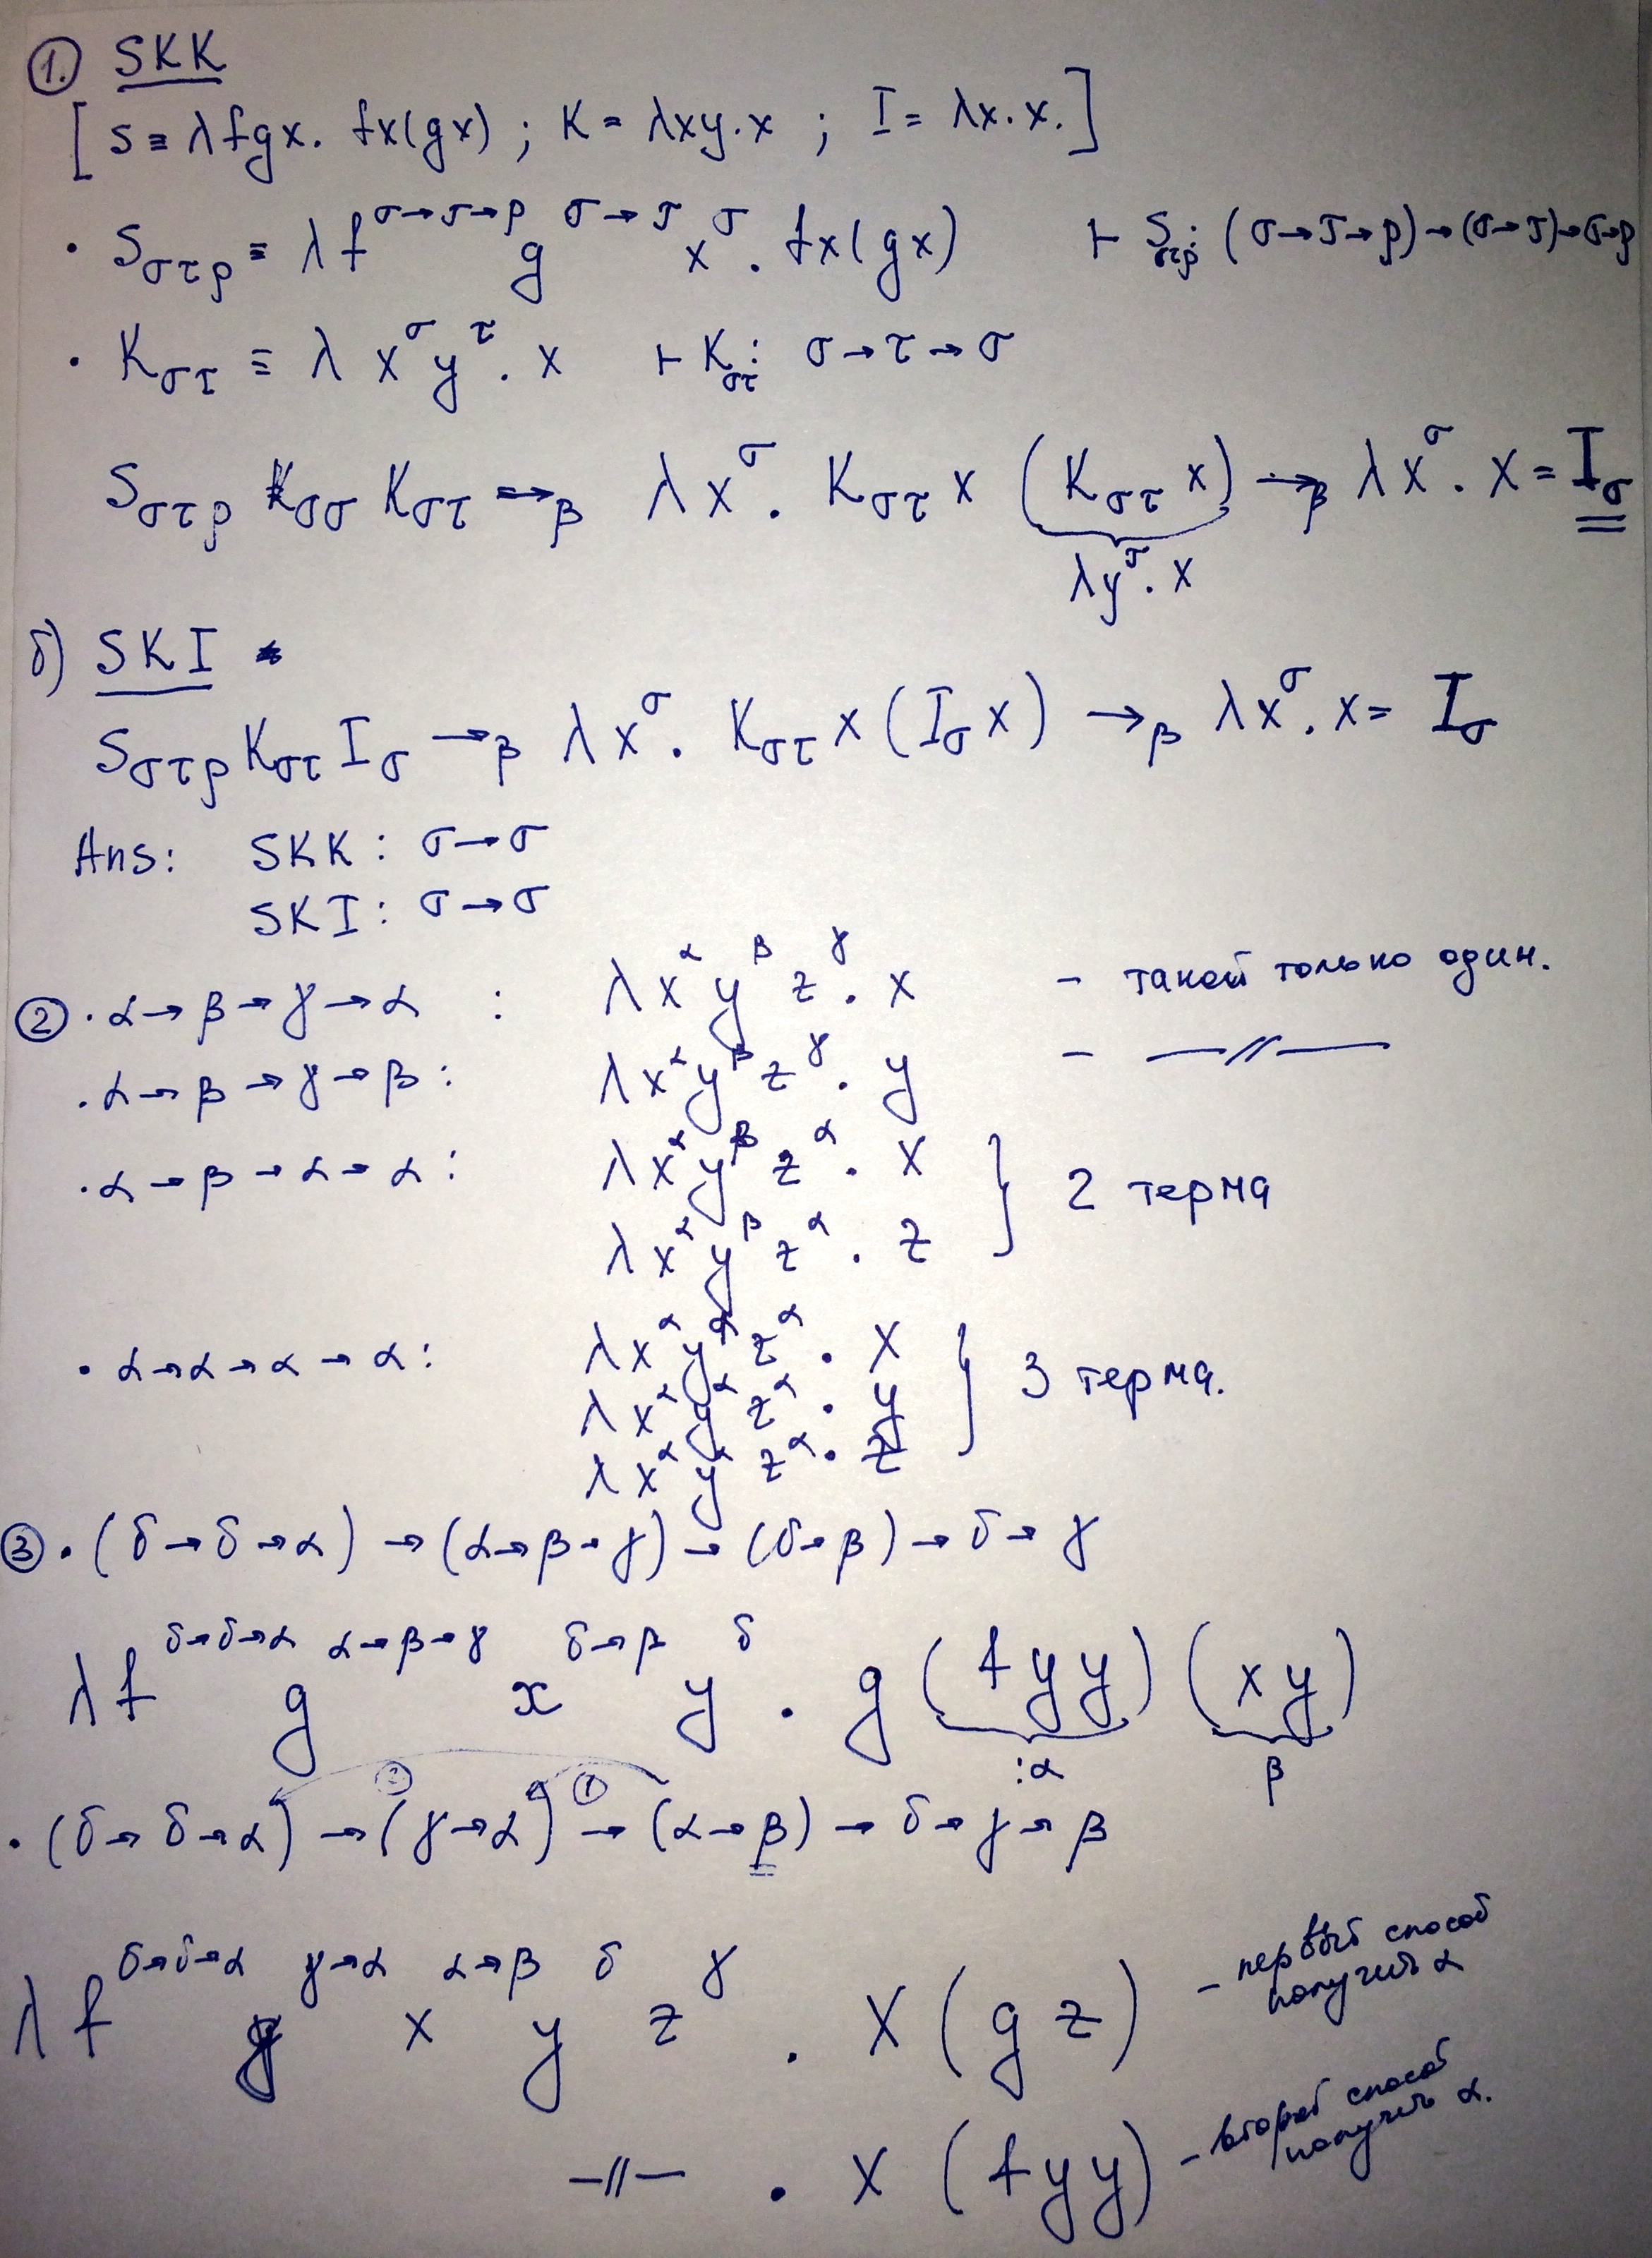 1. SKK
[ S ≡ λfgx. fx(gx) ; K = λxy.x ; I = λx.x. ]
• S_{στρ} ≡ λf^{σ→τ→ρ} g^{σ→τ} x^σ . fx(gx) ⊢ S_{στρ}: (σ→τ→ρ)→(σ→τ)→σ→ρ
• K_{στ} ≡ λ x^σ y^τ . x ⊢ K_{στ}: σ→τ→σ
S_{στρ} K_{σσ} K_{στ} ↠_β λx^σ . K_{στ} x (K_{στ} x) ↠_β λx^σ . x = I_σ
λy^τ . x
б) SKI
S_{στρ} K_{στ} I_σ →_β λx^σ . K_{στ} x (I_σ x) →_β λx^σ . x = I_σ
Ans: SKK : σ→σ
SKI : σ→σ
2 • α→β→γ→α : λx^α y^β z^γ . x - такой только один.
• α→β→γ→β : λx^α y^β z^γ . y - —//—
• α→β→α→α : λx^α y^β z^α . x
λx^α y^β z^α . z } 2 терма
• α→α→α→α : λx^α y^α z^α . x
λx^α y^α z^α . y } 3 терма.
λx^α y^α z^α . z
3 • (δ→δ→α) → (α→β→γ) → (δ→β) → δ→γ
λf^{δ→δ→α} g^{α→β→γ} x^{δ→β} y^δ . g (fyy) (xy)
:α β
2 1
• (δ→δ→α) → (γ→α) → (α→β) → δ→γ→β
λf^{δ→δ→α} g^{γ→α} x^{α→β} y^δ z^γ . x (g z) - первый способ
получить α
—//— . x (fyy) - второй способ
получить α.